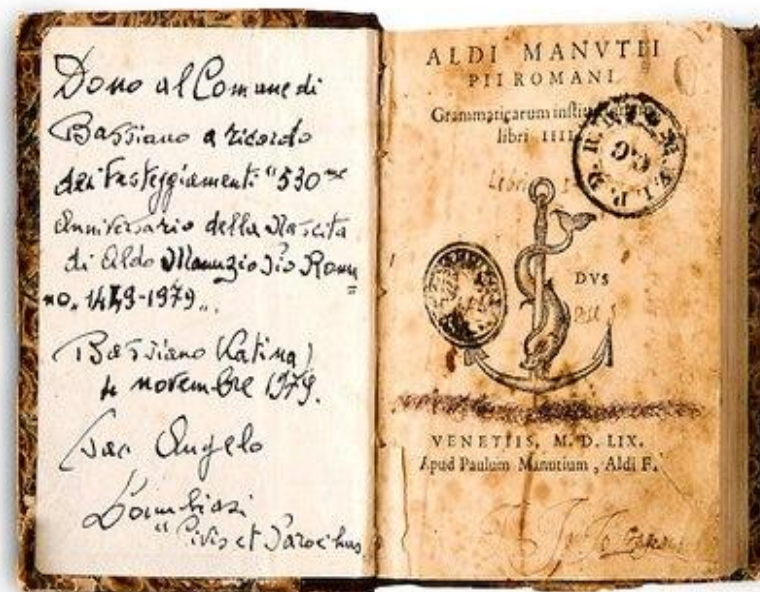 Dono al Comune di
Bassiano a ricordo
dei festeggiamenti "530mo
Anniversario della Nascita
di Aldo Manuzio Pio Roma
no, 1449-1979".
Bassiano (Latina)
4 novembre 1979.
Sac Angelo
Lambiasi
"Civis et Parochus
ALDI MANVTII
PII ROMANI
Grammaticarum
libri IIII
DVS
VENETIIS, M. D. LIX.
Apud Paulum Manutium, Aldi F.